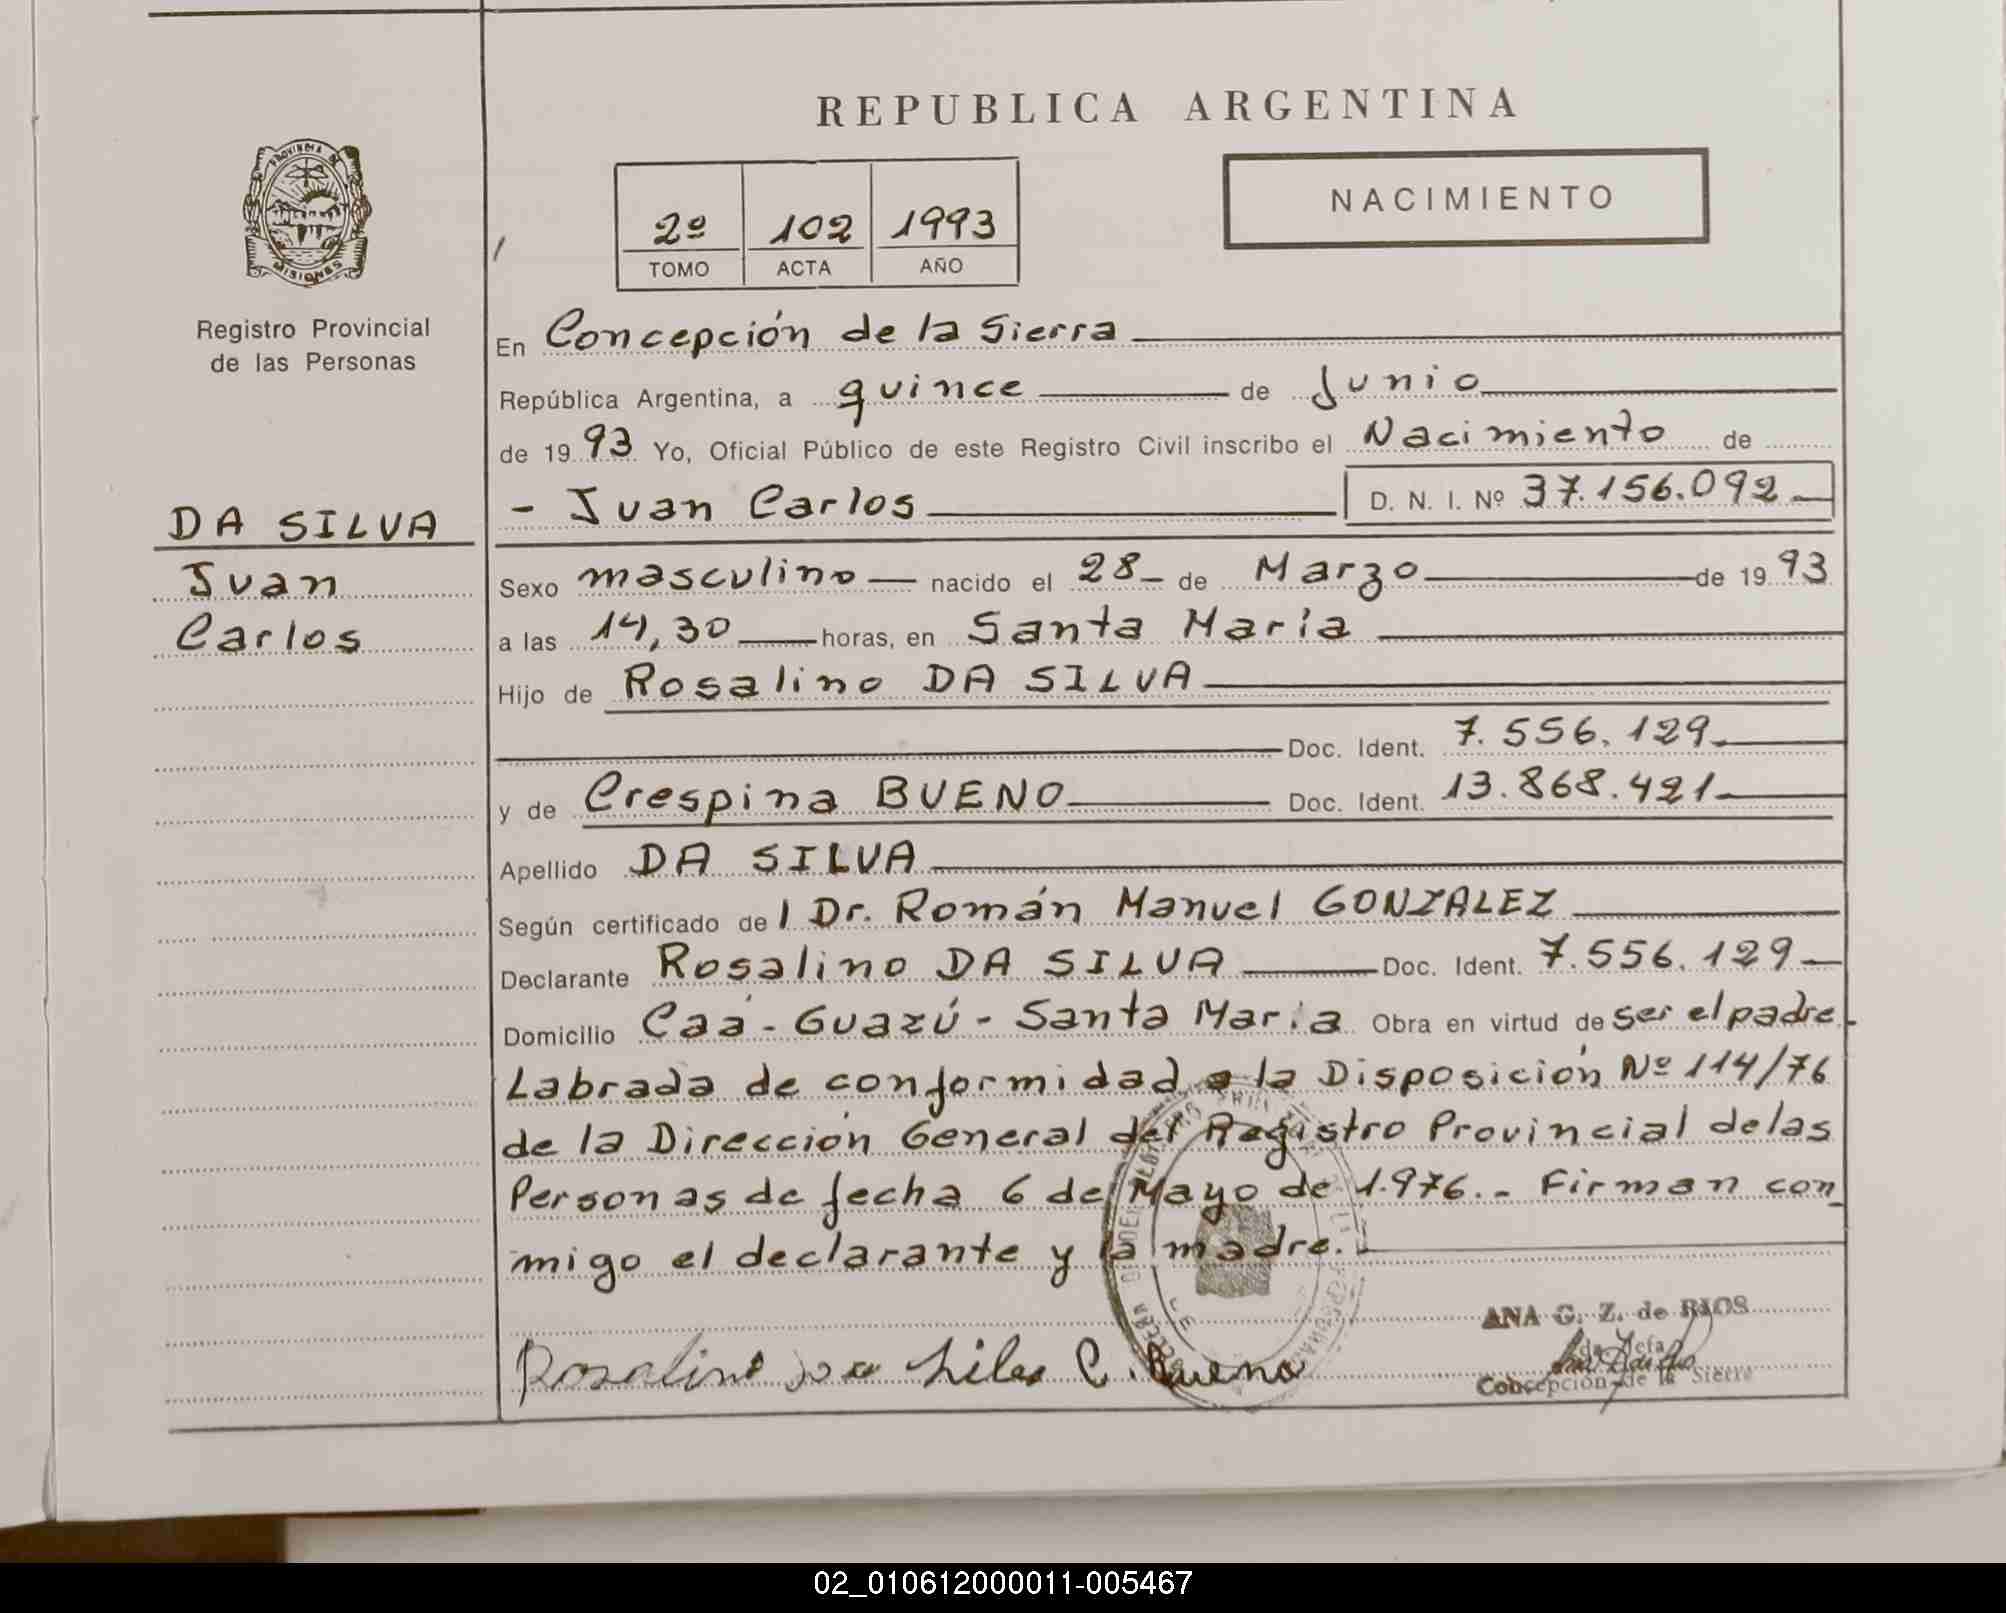 REPUBLICA ARGENTINA
PROVINCIA DE
MISIONES
Registro Provincial
de las Personas
2º 102 1993
TOMO ACTA AÑO
NACIMIENTO
En Concepción de la Sierra
República Argentina, a quince de Junio
de 1993 Yo, Oficial Público de este Registro Civil inscribo el Nacimiento de
- Juan Carlos D. N. I. Nº 37.156.092
DA SILVA
Juan
Carlos
Sexo masculino nacido el 28 de Marzo de 1993
a las 14,30 horas, en Santa Maria
Hijo de Rosalino DA SILVA
Doc. Ident. 7.556.129
y de Crespina BUENO Doc. Ident. 13.868.421
Apellido DA SILVA
Según certificado del Dr. Román Manuel GONZALEZ
Declarante Rosalino DA SILVA Doc. Ident. 7.556.129
Domicilio Caá-Guazú - Santa Maria Obra en virtud de ser el padre.
Labrada de conformidad a la Disposición Nº 114/76
de la Dirección General del Registro Provincial de las
Personas de fecha 6 de Mayo de 1.976.- Firman con
migo el declarante y la madre.
ANA G. Z. de RIOS
Jefa
Concepción de la Sierra
Rosalino C. Bueno
02_010612000011-005467